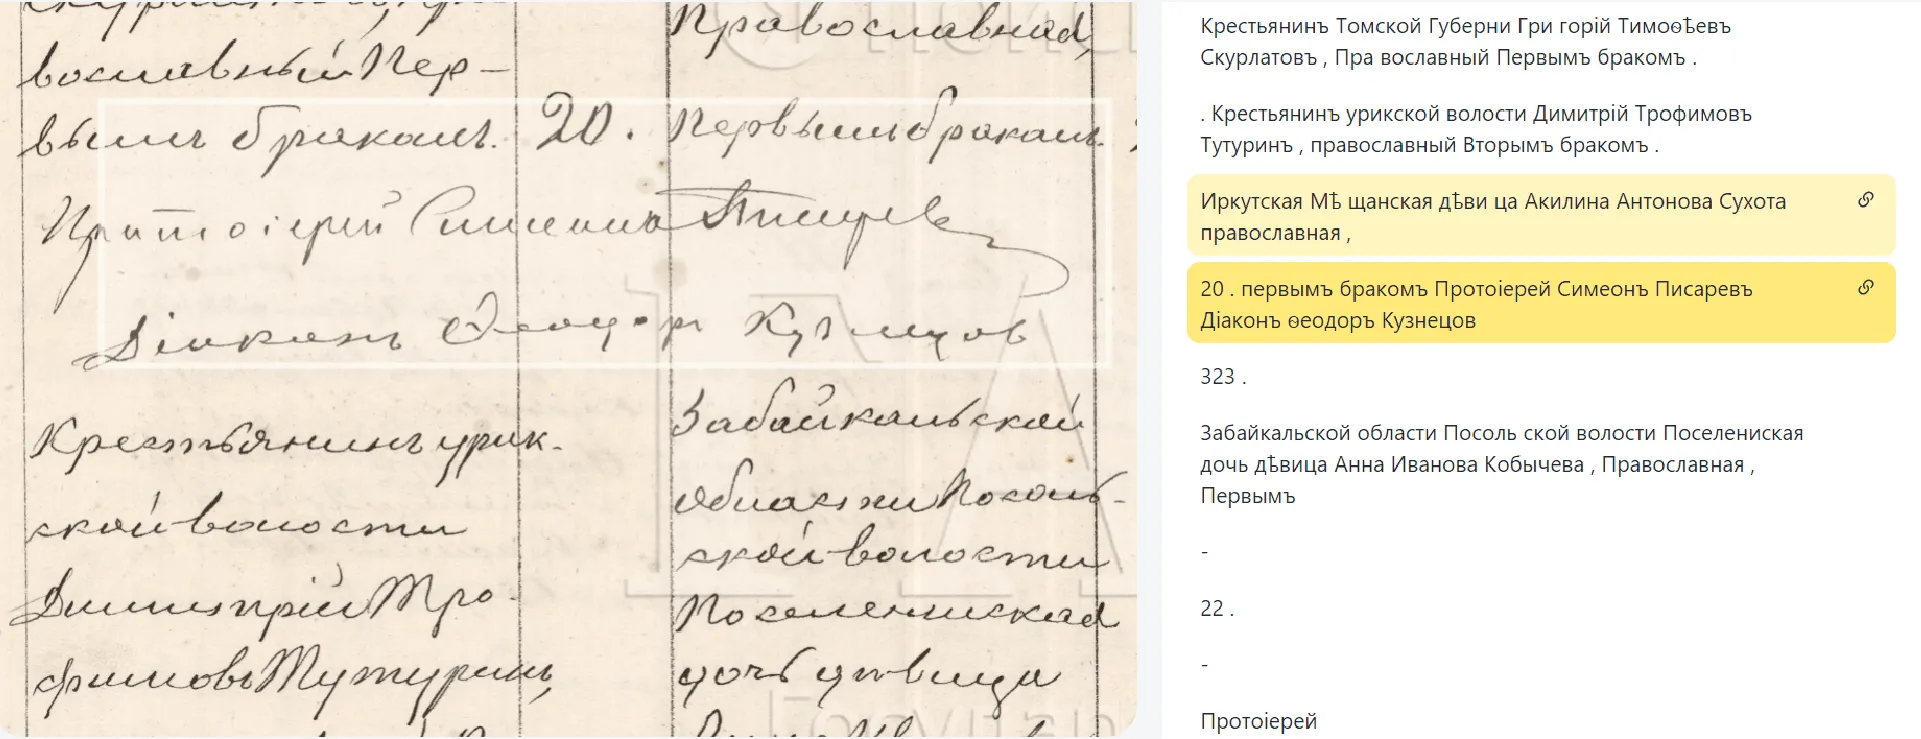 вославный Пер-
вымъ бракомъ.
20.
Православная,
Первымъ бракомъ.
Протоіерей Симеонъ Писаревъ
Діаконъ Ѳеодоръ Кузнецов
Крестьянинъ урик-
ской волости
Димитрій Тро-
фимовъ Тутуринъ,
Забайкальской
области Посоль-
ской волости
Поселениская
дочь дѣвица
Крестьянинъ Томской Губерни Гри горій Тимоѳѣевъ
Скурлатовъ , Пра вославный Первымъ бракомъ .
. Крестьянинъ урикской волости Димитрій Трофимовъ
Тутуринъ , православный Вторымъ бракомъ .
Иркутская Мѣ щанская дѣви ца Акилина Антонова Сухота
православная ,
20 . первымъ бракомъ Протоіерей Симеонъ Писаревъ
Діаконъ ѳеодоръ Кузнецов
323 .
Забайкальской области Посоль ской волости Поселениская
дочь дѣвица Анна Иванова Кобычева , Православная ,
Первымъ
-
22 .
-
Протоіерей